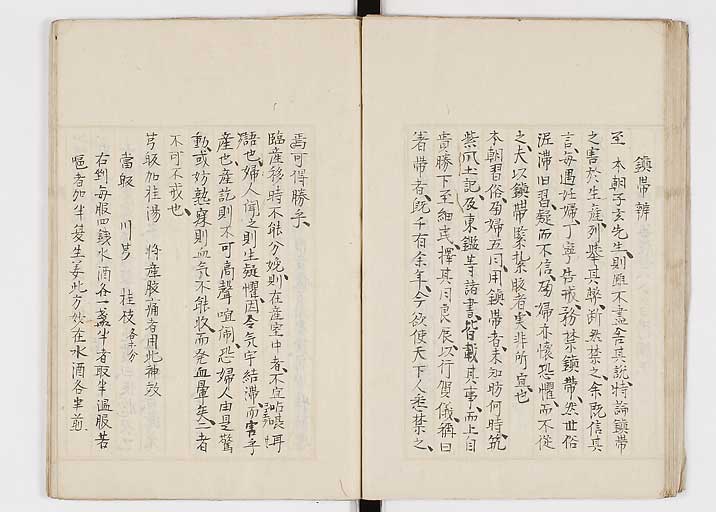 鎭帶辨
至　本朝子玄先生則雖不盡含其説特論鎭帶
之害於生産列擧其弊斷然禁之余既信其
言每遇妊婦丁寧告戒務禁鎭帶然世俗
泥滯旧習疑而不信孕婦亦懷恐懼而不從
之夫以鎭帶緊紮腹者實非所宜也
本朝習俗孕婦五月用鎭帶者未知昉何時筑
紫风土記及東鑑等諸書皆載其事而上自
貴勝下至細民擇其月良辰以行賀儀稱曰
着帶者既千有余年今欲使天下人悉禁之
焉可得勝乎
臨産移時不能分娩則在産室中者不宜呫囁耳
語也婦人聞之則生疑懼因令气宇結滯而害乎
產也產訖則不可高聲喧鬧恐婦人由是驚
動或妨熟寐則血气不能收而発血暈矣二者
不可不戒也
芎皈加桂湯　將産腹痛者用此神效
當皈　川芎　桂枝各等分
右剉每服四錢水酒各一盞半煮取半温服若
嘔者加半夏生姜此方妙在水酒各半煎